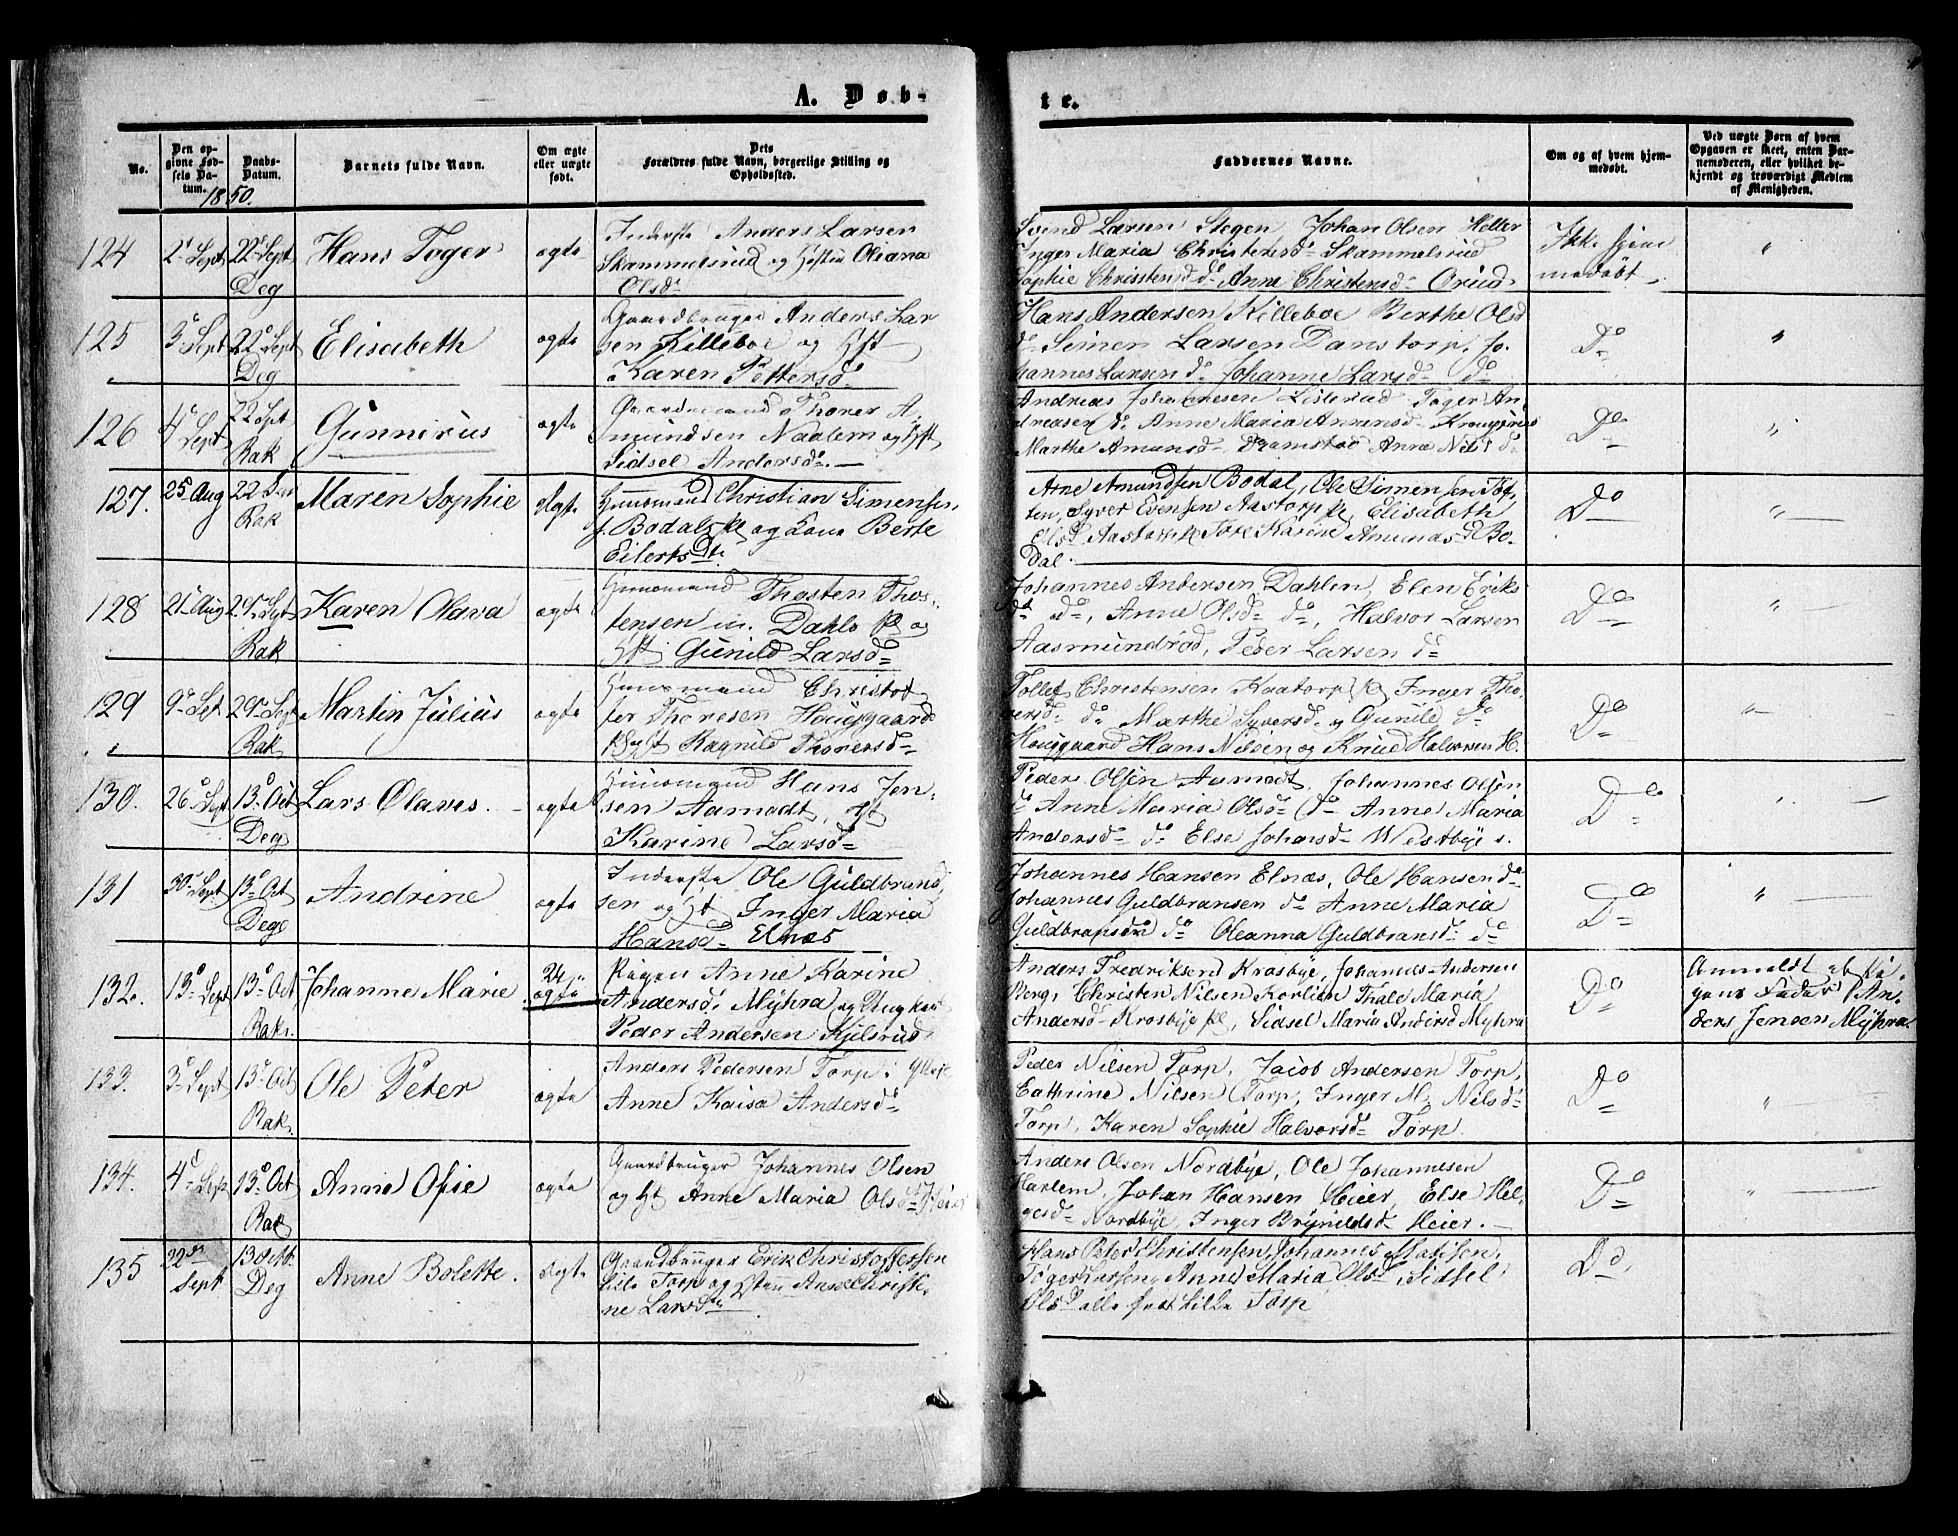 A. Døb-
te.
No.
Den opgivne Fødsels Datum.
Daabs-Datum.
1850.
Barnets fulde Navn.
Om ægte eller uægte født.
Dets Forældres fulde Navn, borgerlige Stilling og Opholdssted.
Faddernes Navne.
Om og af hvem hjemmedøbt.
Ved uægte Børn af hvem Opgaven er skeet, enten Barnemoderen, eller hvilket bekjendt og troværdigt Medlem af Menigheden.
124 2 Sept 22 Sept Deg Hans Toger ægte
Inderste Anders Larsen
Skammelsrud og Hustru Oliana
Olsd
Svend Larsen Stegen Johan Olsen Heller
Inger Maria Christensd Skammelsrud
Sophie Christensd do Anne Christensd Orud
Ikke hjemmedøbt "
125 3 Sept 22 Sept Deg Elisabeth ægte
Gaardbruger Anders Lar
sen Killeboe og Hst
Karen Pettersd
Hans Andersen Killeboe Berthe Olsd
do Simen Larsen Danstorp, Jo
hannes Larsen do Johanne Larsd do
Do "
126 4 Sept 22 Sept Rak Gunnerus ægte
Gaardmand Thorer A
mundsen Naalem og Hst
Sidsel Andersd
Andreas Johannesen Listerud Toger An
dreasen do Anne Maria Annensd
Marthe Amunsd Dramstad Anne Nilsd do
Do "
127. 25 Aug 22 Sept Rak Maren Sophie Ægte
Huusmand Christian Simensen
Bodal pl og Kone Berte
Eilertsdtr
Arne Amundsen Bodal, Ole Simensen Tof
ten, Syver Evensen Aastorp pl Elisabeth
Olsd Aastorp pl Tore Karine Amundsd Bo-
dal.
Do "
128 21 Aug 29 Sept Rak Karen Olava ægte
Huusmand Thosten Thos
tensen u. Dahlo pl og
Hst Gunild Larsd
Johannes Andersen Dahlen, Elen Eriks
d do, Anne Olsd do, Halvor Larsen
Aasmundrød, Peder Larsen do
Do "
129 9 Sept 29 Sept Rak Martin Julius ægte
Huusmand Christof
fer Thoresen Houggaard
pl Hst Ragnild Thorersd
Tollef Christensen Kaatorp pl Inger Tho
rersd do Marthe Syversd og Gunild do
Houggaard Hans Nilsen og Knud Halvorsen H.
Do "
130. 26 Sept 13 Oct Deg Lars Olaves. ægte
Huusmand Hans Jen
sen Aamodt, Hst
Karine Larsd
Peder Olsen Aamodt, Johannes Olsen
do Anne Maria Olsd do Anne Maria
Andersd do Else Johansd Westbye
Do "
131 30 Sept 13 Oct Dege Andrine ægte
Inderste Ole Guldbrand
sen og Hst Inger Maria
Hansd Elnæs
Johannes Hansen Elnæs, Ole Hansen do
Johannes Guldbransen do Anne Maria
Guldbransen do Oleanna Guldbransd do
Do "
132. 13 Sept 13 Oct Rak. Johanne Marie uægte
Pigen Anne Karine
Andersd Myhra og Ungkar
Peder Andersen Kjelsrud
Anders Fredriksen Krosbye, Johannes Andersen
Berg, Christen Nilsen Korlien Thale Maria
Andersd Krosbye pl, Sidsel Maria Andersd Myhra
Do
Anmeldt af Pi
gens Fader An
ders Jensen Myhra
133. 3 Sept 13 Oct Rak. Ole Peter ægte
Anders Pedersen Torp
Anne Kaisa Andersd
Peder Nilsen Torp, Jacob Andersen Torp,
Cathrine Nilsen Torp, Inger M. Nilsd
Torp, Karen Sophie Halvorsd Torp
Do "
134. 4 Sept 13 Oct Rak Anne Ofie ægte
Gaardbruger Johannes Olsen
og Hst Anne Maria Olsd Heier
Anders Olsen Nordbye, Ole Johannesen
Harlem, Johan Hansen Heier, Else Hel
gesd Nordbye, Inger Brynildsd Heier.
Do "
135 22de Sept 13 Octbr Deg Anne Bolette. ægte
Gaardbruger Erik Christoffersen
Lille Torp og Hstru Anne Christi
ne Larsdtr
Hans Peter Christensen, Johannes Matisen,
Toger Larsen, Anne Maria Olsd, Sidsel
Olsd alle fra Lille Torp
Do